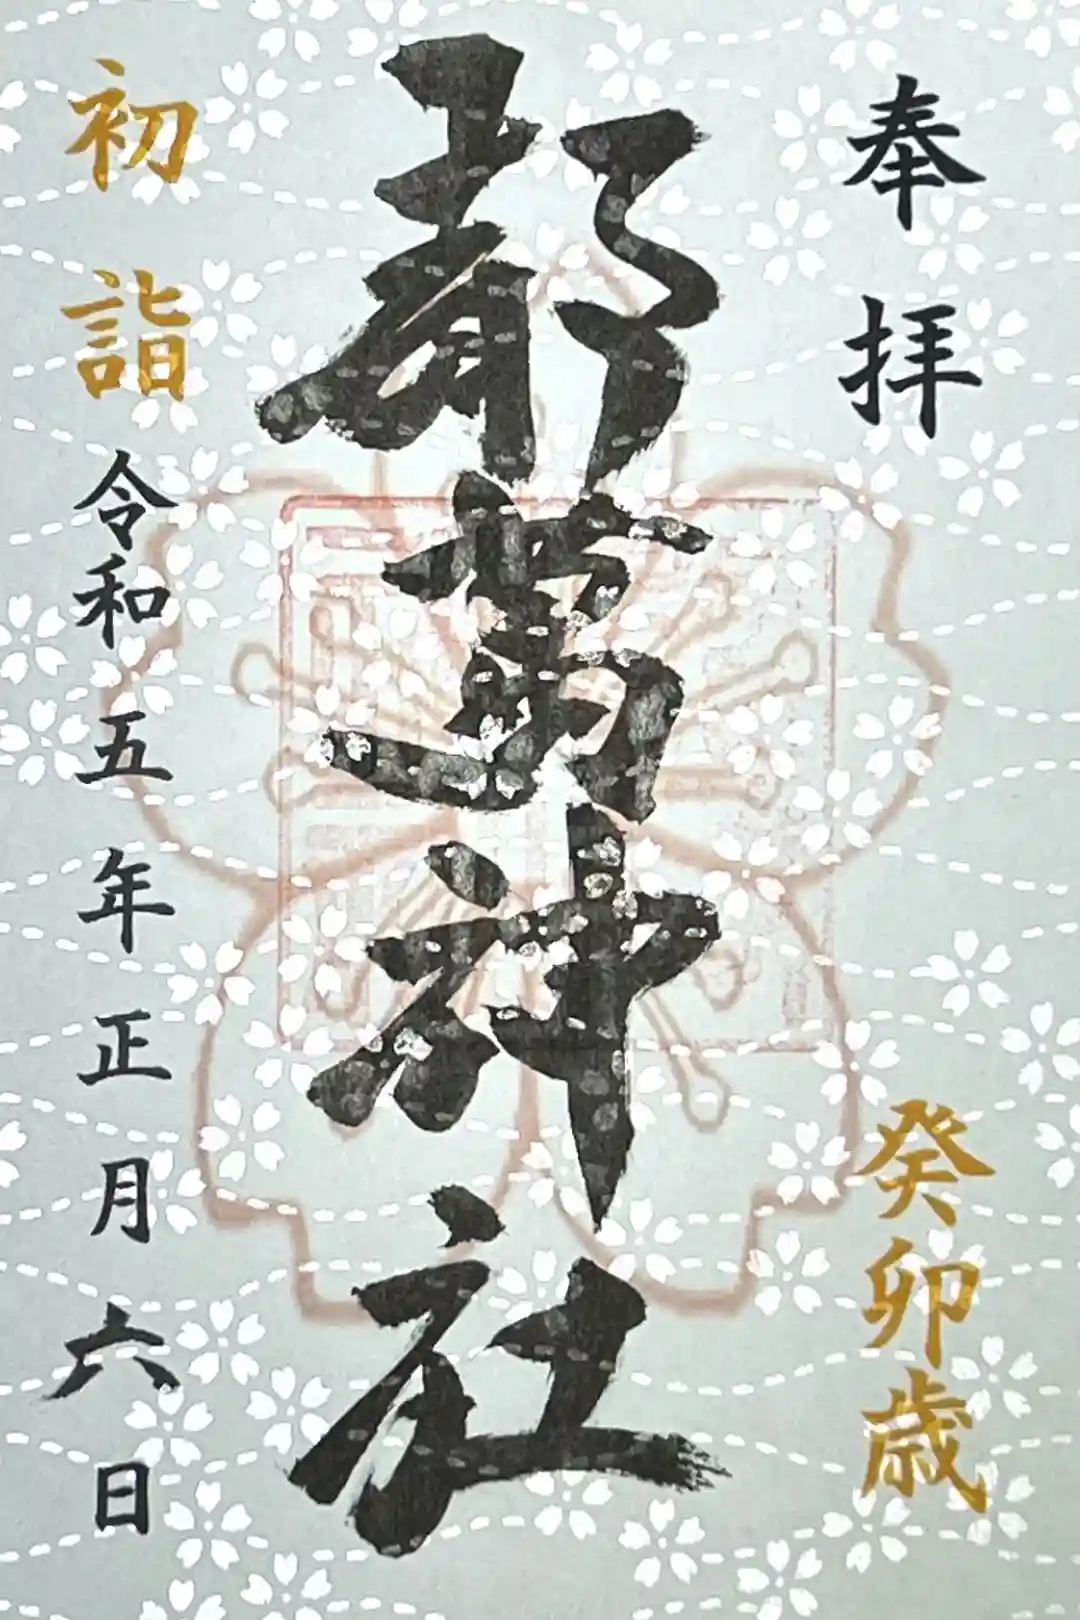 奉拝
癸卯歳
都萬神社
初詣
令和五年正月六日